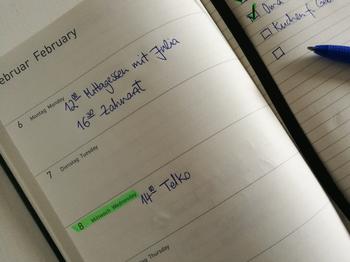 ebruar February
6 Montag Monday
12⁰⁰ Mittagessen mit Julia
16³⁰ Zahnarzt
7 Dienstag Tuesday
8 Mittwoch Wednesday
14⁰⁰ Telko
Thursday
Oma
Kuchen f.